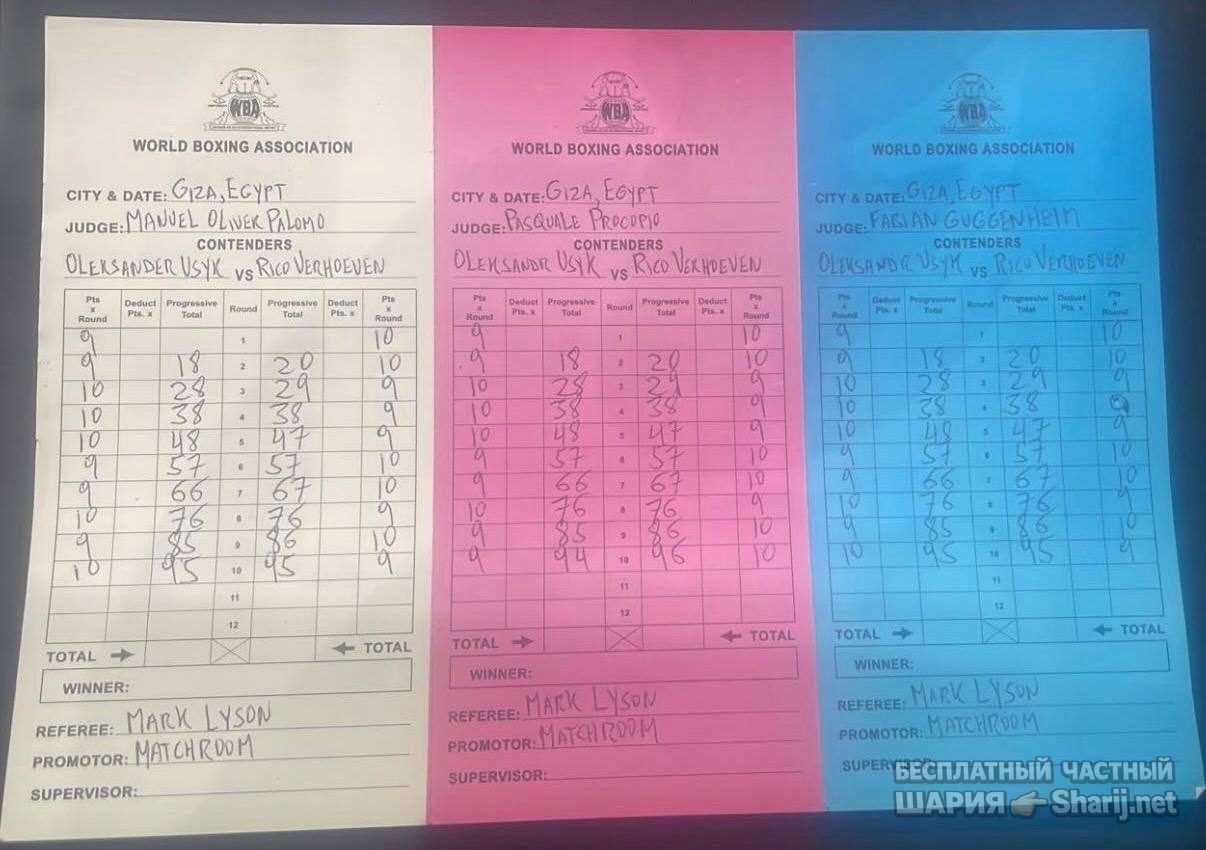 WBA
WORLD BOXING ASSOCIATION
CITY & DATE: GIZA, EGYPT
JUDGE: MANUEL OLIVER PALOMO
CONTENDERS
OLEKSANDER USYK VS RICO VERHOEVEN
Pts x Round Deduct Pts. x Progressive Total Round Progressive Total Deduct Pts. x Pts x Round
9 1 10
9 18 2 20 10
10 28 3 29 9
10 38 4 38 9
10 48 5 47 9
9 57 6 57 10
9 66 7 67 10
10 76 8 76 9
9 85 9 86 10
10 95 10 95 9
11
12
TOTAL TOTAL
WINNER:
REFEREE: MARK LYSON
PROMOTOR: MATCHROOM
SUPERVISOR:
WBA
WORLD BOXING ASSOCIATION
CITY & DATE: GIZA, EGYPT
JUDGE: PASQUALE PROCOPIO
CONTENDERS
OLEKSANDR USYK VS RICO VERHOEVEN
Pts x Round Deduct Pts. x Progressive Total Round Progressive Total Deduct Pts. x Pts x Round
9 1 10
9 18 2 20 10
10 28 3 29 9
10 38 4 38 9
10 48 5 47 9
9 57 6 57 10
9 66 7 67 10
10 76 8 76 9
9 85 9 86 10
9 94 10 96 10
11
12
TOTAL TOTAL
WINNER:
REFEREE: MARK LYSON
PROMOTOR: MATCHROOM
SUPERVISOR:
WBA
WORLD BOXING ASSOCIATION
CITY & DATE: GIZA, EGYPT
JUDGE: FABIAN GUGGENHEIM
CONTENDERS
OLEKSANDR USYK VS RICO VERHOEVEN
Pts x Round Deduct Pts. x Progressive Total Round Progressive Total Deduct Pts. x Pts x Round
9 1 10
9 18 2 20 10
10 28 3 29 9
10 38 4 38 9
10 48 5 47 9
9 57 6 57 10
9 66 7 67 10
10 76 8 76 9
9 85 9 86 10
10 95 10 95 9
11
12
TOTAL TOTAL
WINNER:
REFEREE: MARK LYSON
PROMOTOR: MATCHROOM
SUPERVISOR:
БЕСПЛАТНЫЙ ЧАСТНЫЙ
ШАРИЯ 👉 Sharij.net